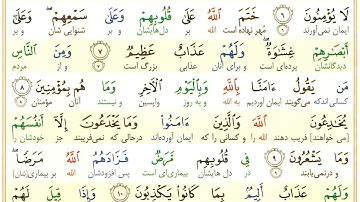 لَا يُؤْمِنُونَ ٦ خَتَمَ اللَّهُ عَلَىٰ قُلُوبِهِمْ وَعَلَىٰ سَمْعِهِمْ ۖ وَعَلَىٰ
ایمان نمی‌آورند مُهر نهاده است الله بر دل‌هایشان و بر شنوایی شان و بر
أَبْصَارِهِمْ غِشَاوَةٌ ۖ وَلَهُمْ عَذَابٌ عَظِيمٌ ٧ وَمِنَ النَّاسِ
دیدگانشان پرده‌ای است و برای آنان عذابی بزرگ است و از مردم
مَن يَقُولُ ءَامَنَّا بِاللَّهِ وَبِالْيَوْمِ الْآخِرِ وَمَا هُم بِمُؤْمِنِينَ ٨
کسانی اندکه می‌گویند ایمان آوردیم به الله و به روز واپسین و نیستند آنان مؤمنان
يُخَادِعُونَ اللَّهَ وَالَّذِينَ ءَامَنُوا وَمَا يَخْدَعُونَ إِلَّا أَنفُسَهُمْ
فریب دهند الله را و کسانی را که ایمان آورده‌اند درحالی که نمی‌فریبند جز خودشان را
وَمَا يَشْعُرُونَ ٩ فِي قُلُوبِهِم مَّرَضٌ فَزَادَهُمُ اللَّهُ مَرَضًا ۖ
و درنمی‌یابند در دل هایشان بیماری‌ای است پس افزودشان الله بیماری را
وَلَهُمْ عَذَابٌ أَلِيمٌ بِمَا كَانُوا يَكْذِبُونَ ١٠ وَإِذَا قِيلَ لَهُمْ